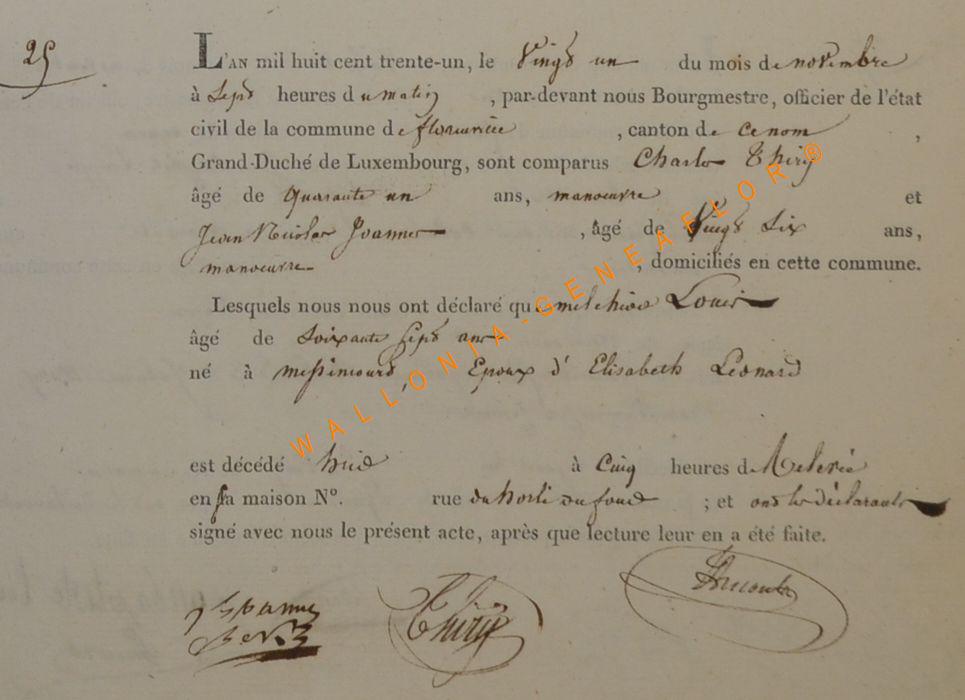 25
L'AN mil huit cent trente-un, le Vingt un du mois de novembre
à Sept heures du matin, par-devant nous Bourgmestre, officier de l'état
civil de la commune de florenville, canton de ,
Grand-Duché de Luxembourg, sont comparus Charles Thiry
âgé de quarante un ans, manoeuvre et
Jean Nicolas Joannes, âgé de Vingt Six ans,
manoeuvre, domiciliés en cette commune.
Lesquels nous nous ont déclaré que melchior Louis
âgé de Soixante Sept ans
né à messincourt, Epoux d' Elisabeth Léonard
est décédé hier à Cinq heures de Relevée
en sa maison No. rue du ; et ont les déclarants
signé avec nous le présent acte, après que lecture leur en a été faite.
Thiry
WALLONIA-GENEAFLOR®